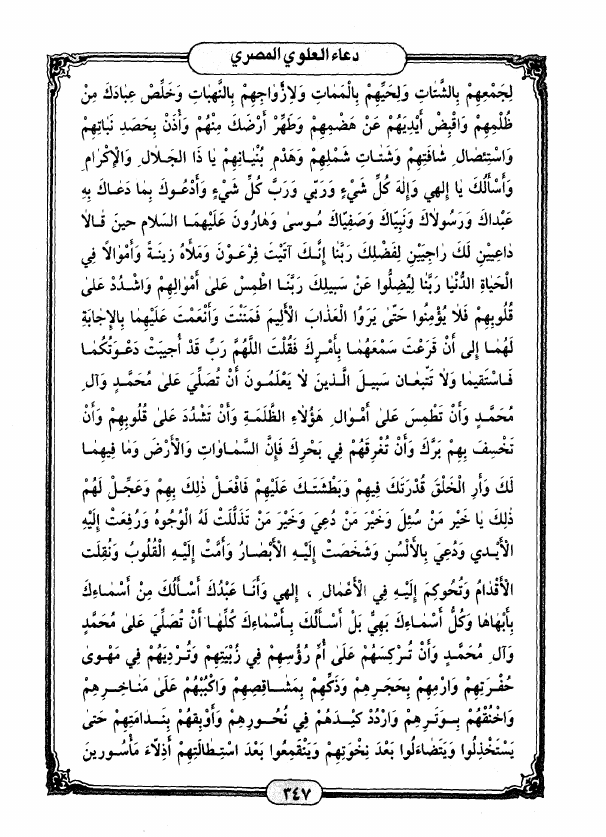 دعاء العلوي المصري
لِجَمْعِهِمْ بِالشَّتَاتِ وَلِحَيِّهِمْ بِالْمَمَاتِ وَلِأَزْوَاجِهِمْ بِالنَّهَبَاتِ وَخَلِّصْ عِبَادَكَ مِنْ
ظُلْمِهِمْ وَاقْبِضْ أَيْدِيَهُمْ عَنْ هَضْمِهِمْ وَطَهِّرْ أَرْضَكَ مِنْهُمْ وَأْذَنْ بِحَصَدِ نَبَاتِهِمْ
وَاسْتِئْصَالِ شَافَتِهِمْ وَشَتَاتِ شَمْلِهِمْ وَهَدْمِ بُنْيَانِهِمْ يَا ذَا الْجَلَالِ وَالْإِكْرَامِ
وَأَسْأَلُكَ يَا إِلٰهِي وَإِلٰهَ كُلِّ شَيْءٍ وَرَبِّي وَرَبَّ كُلِّ شَيْءٍ وَأَدْعُوكَ بِمَا دَعَاكَ بِهِ
عَبْدَاكَ وَرَسُولَاكَ وَنَبِيَّاكَ وَصَفِيَّاكَ مُوسىٰ وَهَارُونَ عَلَيْهِمَا السلام حينَ قَالَا
دَاعِيَيْنِ لَكَ رَاجِيَيْنِ لِفَضْلِكَ رَبَّنَا إِنَّكَ آتَيْتَ فِرْعَوْنَ وَمَلَأَهُ زِينَةً وَأَمْوَالًا فِي
الْحَيَاةِ الدُّنْيَا رَبَّنَا لِيُضِلُّوا عَنْ سَبِيلِكَ رَبَّنَا اطْمِسْ عَلىٰ أَمْوَالِهِمْ وَاشْدُدْ عَلىٰ
قُلُوبِهِمْ فَلَا يُؤْمِنُوا حَتّىٰ يَرَوُا الْعَذَابَ الْأَلِيمَ فَمَنَنْتَ وَأَنْعَمْتَ عَلَيْهِمَا بِالْإِجَابَةِ
لَهُمَا إِلى أَنْ قَرَعَتْ سَمْعَهُمَا بِأَمْرِكَ فَقُلْتَ اللَّهُمَّ رَبِّ قَدْ أُجِيبَتْ دَعْوَتُكُمَا
فَاسْتَقِيمَا وَلَا تَتَّبِعَانِ سَبِيلَ الَّذِينَ لَا يَعْلَمُونَ أَنْ تُصَلِّيَ عَلىٰ مُحَمَّدٍ وَآلِ
مُحَمَّدٍ وَأَنْ تَطْمِسَ عَلىٰ أَمْوَالِ هَؤُلَاءِ الظَّلَمَةِ وَأَنْ تَشْدُدَ عَلىٰ قُلُوبِهِمْ وَأَنْ
تَخْسِفَ بِهِمْ بَرَّكَ وَأَنْ تُغْرِقَهُمْ فِي بَحْرِكَ فَإِنَّ السَّمَاوَاتِ وَالْأَرْضَ وَمَا فِيهِمَا
لَكَ وَأَرِ الْخَلْقَ قُدْرَتَكَ فِيهِمْ وَبَطْشَتَكَ عَلَيْهِمْ فَافْعَلْ ذٰلِكَ بِهِمْ وَعَجِّلْ لَهُمْ
ذٰلِكَ يَا خَيْرَ مَنْ سُئِلَ وَخَيْرَ مَنْ دُعِيَ وَخَيْرَ مَنْ تَذَلَّلَتْ لَهُ الْوُجُوهُ وَرُفِعَتْ إِلَيْهِ
الْأَيْدي وَدُعِيَ بِالْأَلْسُنِ وَشَخَصَتْ إِلَيْهِ الْأَبْصَارُ وَأَمَّتْ إِلَيْهِ الْقُلُوبُ وَنُقِلَتْ
الْأَقْدَامُ وَتُحُوكِمَ إِلَيْهِ فِي الْأَعْمَالِ ، إِلٰهِي وَأَنَا عَبْدُكَ أَسْأَلُكَ مِنْ أَسْمَاءِكَ
بِأَبْهَاهَا وَكُلُّ أَسْمَاءِكَ بَهِيٌّ بَلْ أَسْأَلُكَ بِأَسْمَاءِكَ كُلِّهَا أَنْ تُصَلِّيَ عَلىٰ مُحَمَّدٍ
وَآلِ مُحَمَّدٍ وَأَنْ تُرْكِسَهُمْ عَلىٰ أُمِّ رُؤُسِهِمْ فِي زُبْيَتِهِمْ وَتُرْدِيَهُمْ فِي مَهْوىٰ
حُفْرَتِهِمْ وَارْمِهِمْ بِحَجَرِهِمْ وَذَكِّهِمْ بِمَشَاقِصِهِمْ وَاكْبُبْهُمْ عَلىٰ مَنَاخِرِهِمْ
وَاخْنُقْهُمْ بِوَتَرِهِمْ وَارْدُدْ كَيْدَهُمْ فِي نُحُورِهِمْ وَأَوْبِقْهُمْ بِنَدَامَتِهِمْ حَتىٰ
يَسْتَخْذِلُوا وَيَتَضَاءَلُوا بَعْدَ نِخْوَتِهِمْ وَيَنْقَمِعُوا بَعْدَ اسْتِطَالَتِهِمْ أَذِلَّاءَ مَأْسُورينَ
٣٤٧